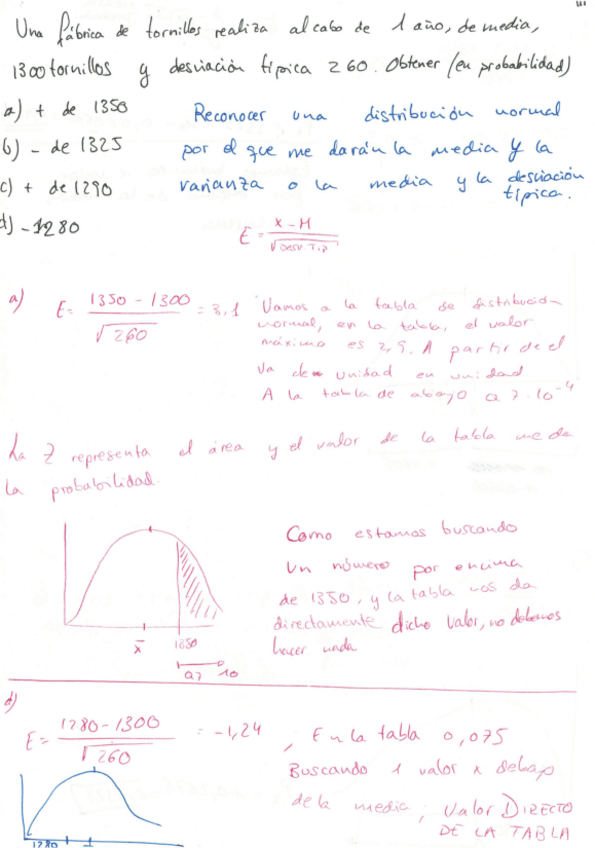 Una fábrica de tornillos realiza al cabo de 1 año, de media,
1300 tornillos y desviación típica 260. Obtener (en probabilidad)
a) + de 1350
b) - de 1325
c) + de 1290
d) - 1280
Reconocer una distribución normal
por el que me darán la media y la
varianza o la media y la desviación
típica.
E = X - M / √Desv. Tip
a) E = 1350 - 1300 / √260 = 3,1
Vamos a la tabla de distribución
normal, en la tabla, el valor
máximo es 2,9. A partir de el
va de unidad en unidad
A la tabla de abajo 0,7·10⁻⁴
La Z representa el área y el valor de la tabla me da
la probabilidad.
x̄
1350
Como estamos buscando
un número por encima
de 1350, y la tabla nos da
directamente dicho valor, no debemos
hacer nada
d)
E = 1280 - 1300 / √260 = -1,24 ; En la tabla 0,075
Buscando 1 valor x debajo
de la media; Valor DIRECTO
DE LA TABLA
1280